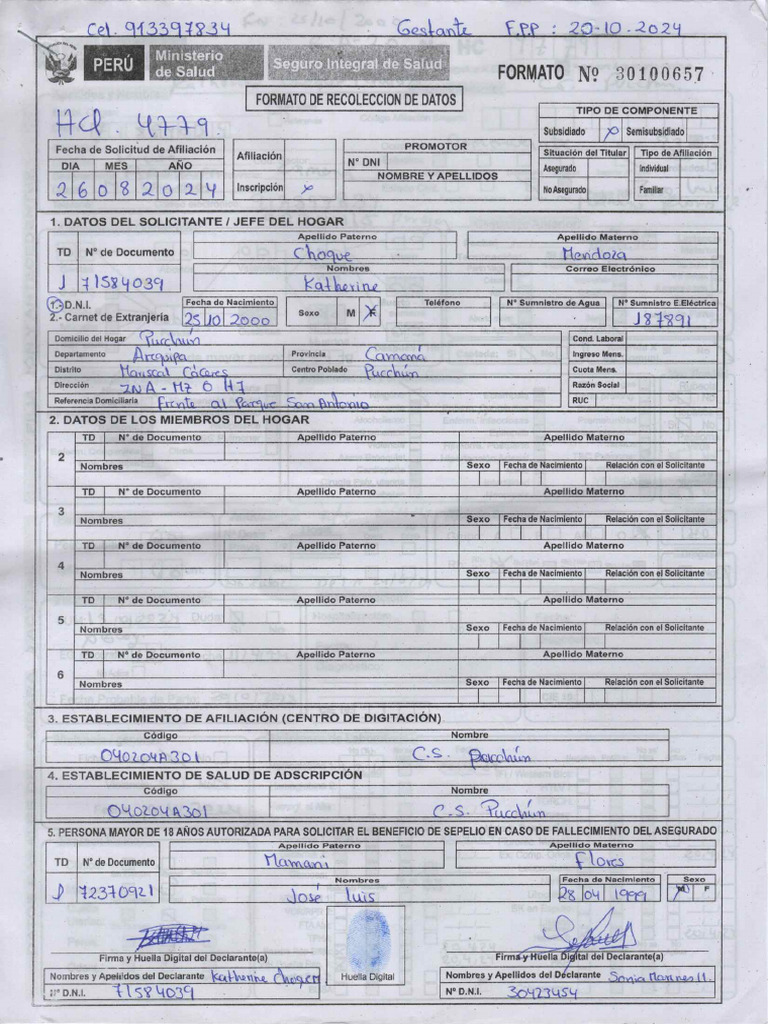 Cel. 913397834 Gestante F.P.P : 20-10-2024
PERÚ Ministerio de Salud Seguro Integral de Salud
FORMATO Nº 30100657
FORMATO DE RECOLECCION DE DATOS
HCl. 4779.
TIPO DE COMPONENTE
Subsidiado x Semisubsidiado
Fecha de Solicitud de Afiliación
DIA MES AÑO
26 08 2024
Afiliación
Inscripción x
PROMOTOR
N° DNI
NOMBRE Y APELLIDOS
Situación del Titular Tipo de Afiliación
Asegurado Individual
No Asegurado Familiar
1. DATOS DEL SOLICITANTE / JEFE DEL HOGAR
TD N° de Documento Apellido Paterno Apellido Materno
Choque Mendoza
Nombres Correo Electrónico
1 71584039 Katherine
1.- D.N.I.
2.- Carnet de Extranjería
Fecha de Nacimiento Sexo M F Teléfono N° Sumnistro de Agua N° Suministro E.Eléctrica
25 10 2000 x 187891
Domicilio del Hogar Pucchún Cond. Laboral
Departamento Arequipa Provincia Camaná Ingreso Mens.
Distrito Mariscal Cáceres Centro Poblado Pucchún Cuota Mens.
Dirección ZNA - MZ O H7 Razón Social
Referencia Domiciliaria Frente al Parque San Antonio RUC
2. DATOS DE LOS MIEMBROS DEL HOGAR
TD N° de Documento Apellido Paterno Apellido Materno
2
Nombres Sexo Fecha de Nacimiento Relación con el Solicitante
TD N° de Documento Apellido Paterno Apellido Materno
3
Nombres Sexo Fecha de Nacimiento Relación con el Solicitante
TD N° de Documento Apellido Paterno Apellido Materno
4
Nombres Sexo Fecha de Nacimiento Relación con el Solicitante
TD N° de Documento Apellido Paterno Apellido Materno
5
Nombres Sexo Fecha de Nacimiento Relación con el Solicitante
TD N° de Documento Apellido Paterno Apellido Materno
6
Nombres Sexo Fecha de Nacimiento Relación con el Solicitante
3. ESTABLECIMIENTO DE AFILIACIÓN (CENTRO DE DIGITACIÓN)
Código Nombre
040204A301 C.S. Pucchún
4. ESTABLECIMIENTO DE SALUD DE ADSCRIPCIÓN
Código Nombre
040204A301 C.S Pucchún
5. PERSONA MAYOR DE 18 AÑOS AUTORIZADA PARA SOLICITAR EL BENEFICIO DE SEPELIO EN CASO DE FALLECIMIENTO DEL ASEGURADO
TD N° de Documento Apellido Paterno Apellido Materno
Mamani Flores
Nombres Fecha de Nacimiento Sexo
1 72370921 José Luis 28 04 1999 M F
Firma y Huella Digital del Declarante(a) Firma y Huella Digital del Declarante(a)
Huella Digital
Nombres y Apellidos del Declarante Katherine Choque M
N° D.N.I. 71584039
Nombres y Apellidos del Declarante Sonia
N° D.N.I. 30423454